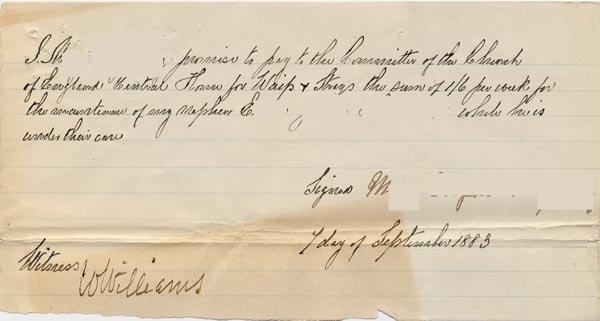 I, M promise to pay to the Committee of the Church
of England Central Home for Waifs & Strays the sum of 1/6 per week for
the maintenance of my nephew E. while he is
under their care
Signed M
7 day of September 1883
Witness W Williams